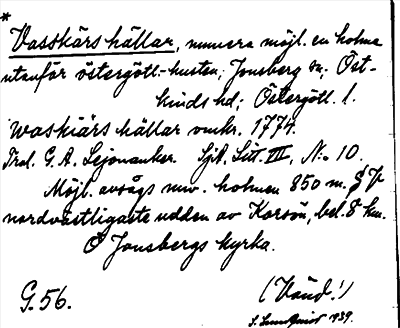 *
Vasskärs hällar, numera möjl. en holme
utanför östergötl.-kusten; Jonsberg sn; Öst-
kinds hd; Östergötl. l.
Waskiärs hällar omkr. 1774.
Trol. G. A. Lejonanker. Sjk. Litt. III, N:o 10.
Möjl. avsågs nuv. holmen 850 m.
nordvästligaste udden av Korsön, bel. 8 km.
Ö Jonsbergs kyrka.
G. 56.
(Vänd!)
1939.